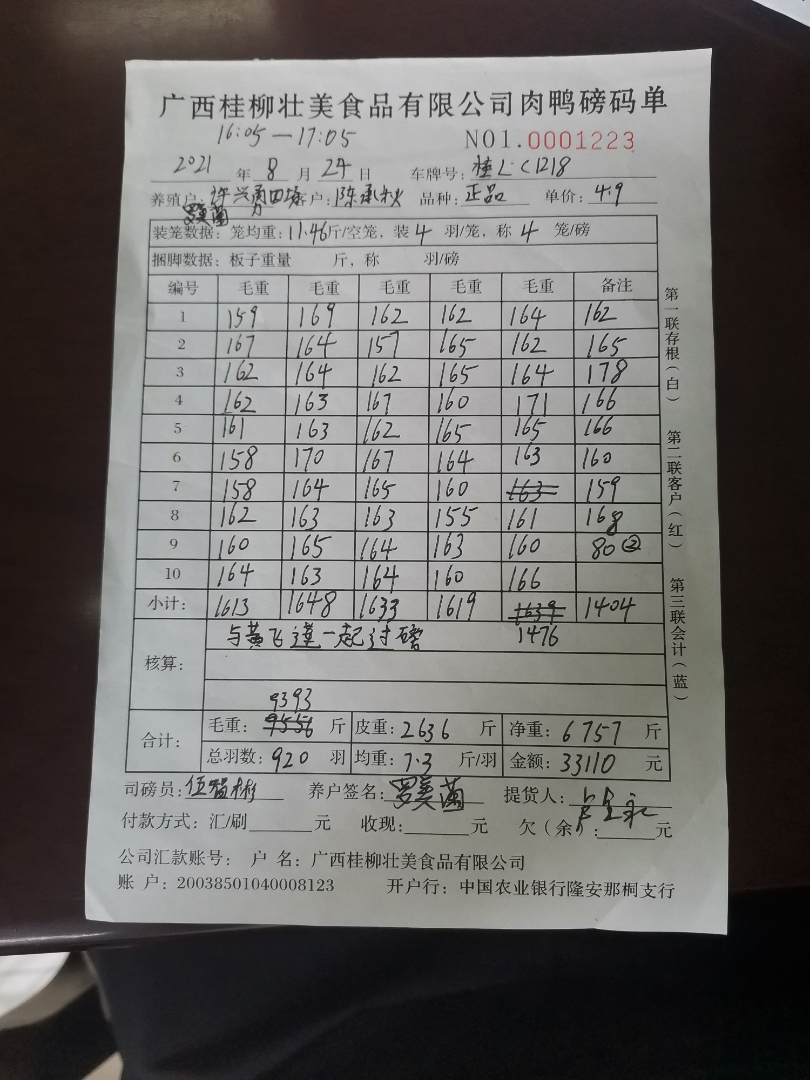 广西桂柳壮美食品有限公司肉鸭磅码单
16:05—17:05 NO1.0001223
2021 年 8 月 24 日 车牌号: 桂L·C1218
养殖户: 许兴勇四场 客户: 陈承秋 品种: 正品 单价: 4.9
罗美菌
装笼数据: 笼均重: 11.46斤/空笼, 装 4 羽/笼, 称 4 笼/磅
捆脚数据: 板子重量 斤, 称 羽/磅
编号 毛重 毛重 毛重 毛重 毛重 备注
1 159 169 162 162 164 162
2 167 164 157 165 162 165
3 162 164 162 165 164 178
4 162 163 167 160 171 166
5 161 163 162 165 165 166
6 158 170 167 164 163 160
7 158 164 165 160 163 159
8 162 163 163 155 161 168
9 160 165 164 163 160 80②
10 164 163 164 160 166
小计: 1613 1648 1633 1619 1639 1404
与黄飞谨一起过磅 1476
核算:
9393
合计: 毛重: 9556 斤 皮重: 2636 斤 净重: 6757 斤
总羽数: 920 羽 均重: 7.3 斤/羽 金额: 33110 元
司磅员: 伍福彬 养户签名: 罗美菌 提货人:
付款方式: 汇/刷 元 收现: 元 欠(余): 元
公司汇款账号: 户 名: 广西桂柳壮美食品有限公司
账 户: 20038501040008123 开户行: 中国农业银行隆安那桐支行
第一联存根(白)
第二联客户(红)
第三联会计(蓝)